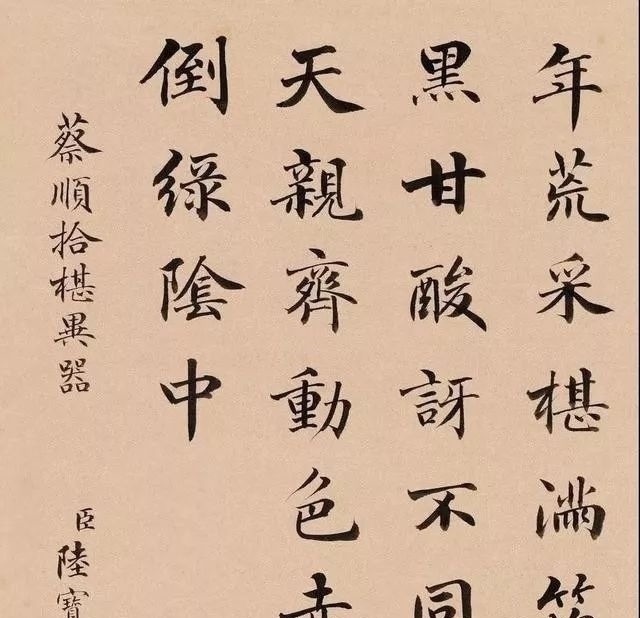 年荒采椹满
黑甘酸訝不同
天親齊動色
倒綠陰中
蔡順拾椹異器
臣陸寶